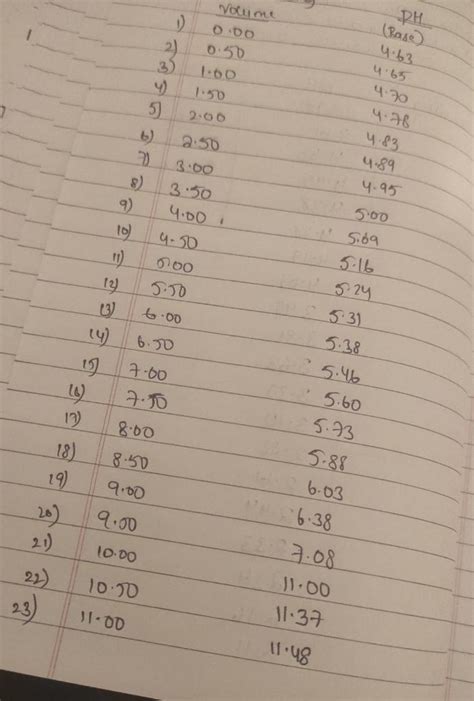 Volume PH
(Base)
1) 0.00 4.63
2) 0.50 4.65
3) 1.00 4.70
4) 1.50 4.78
5) 2.00 4.83
6) 2.50 4.89
7) 3.00 4.95
8) 3.50 5.00
9) 4.00 5.09
10) 4.50 5.16
11) 5.00 5.24
12) 5.50 5.31
13) 6.00 5.38
14) 6.50 5.46
15) 7.00 5.60
16) 7.50 5.73
17) 8.00 5.88
18) 8.50 6.03
19) 9.00 6.38
20) 9.00 7.08
21) 10.00 11.00
22) 10.50 11.37
23) 11.00 11.48